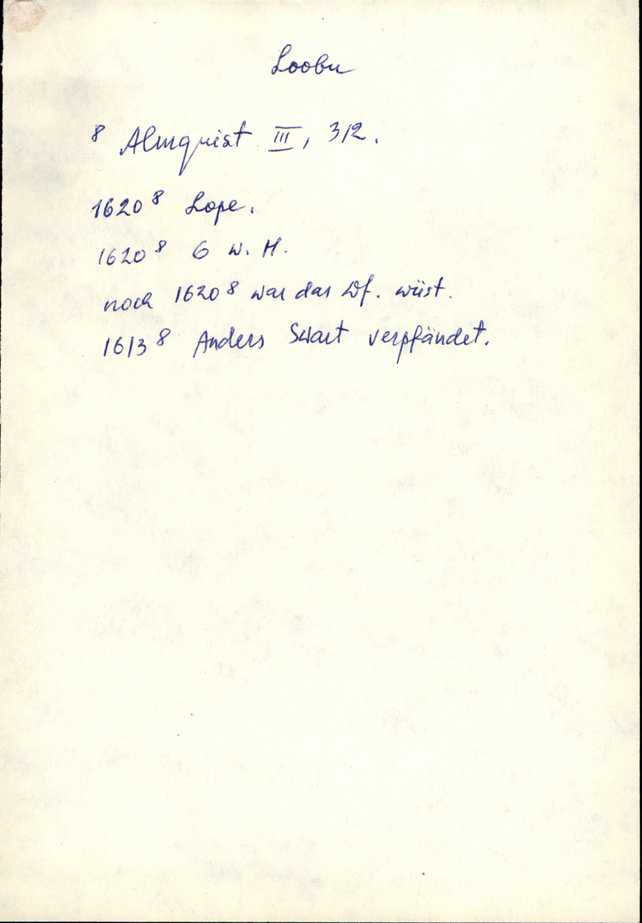 Loobu
⁸ Almquist III, 312.
1620⁸ Lope.
1620⁸ 6 w. H.
noch 1620⁸ war das Df. wüst.
1613⁸ Anders Swart verpfändet.